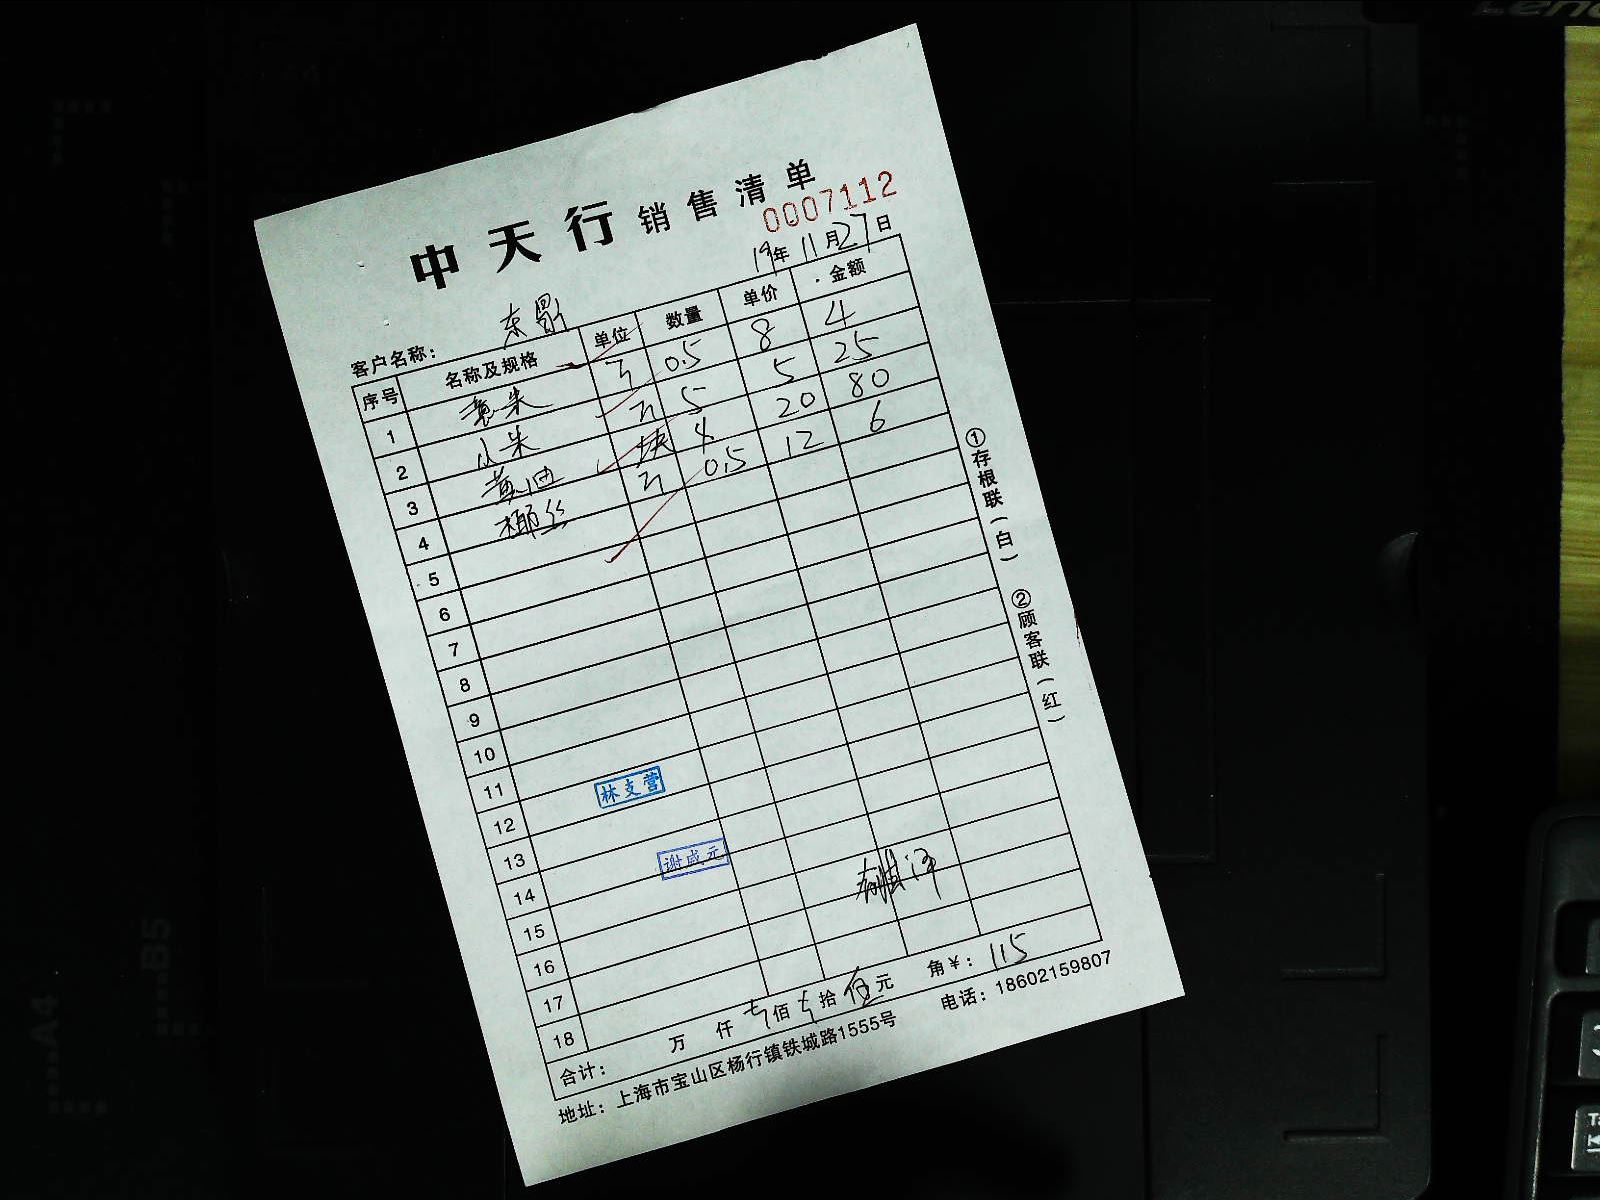 中天行销售清单
0007112
19年11月27日
客户名称：
序号 名称及规格 单位 数量 单价 金额
1 黄米 斤 0.5 8 4
2 小米 斤 5 5 25
3 黄油 块 4 20 80
4 椰丝 斤 0.5 12 6
5
6
7
8
9
10
11
12
13
14
15
16
17
18
林支营
谢成元
合计： 万 仟 壹佰 壹拾 伍元 角¥：115
地址：上海市宝山区杨行镇铁城路1555号 电话：18602159807
①存根联（白） ②顾客联（红）
Leno
B5
A4